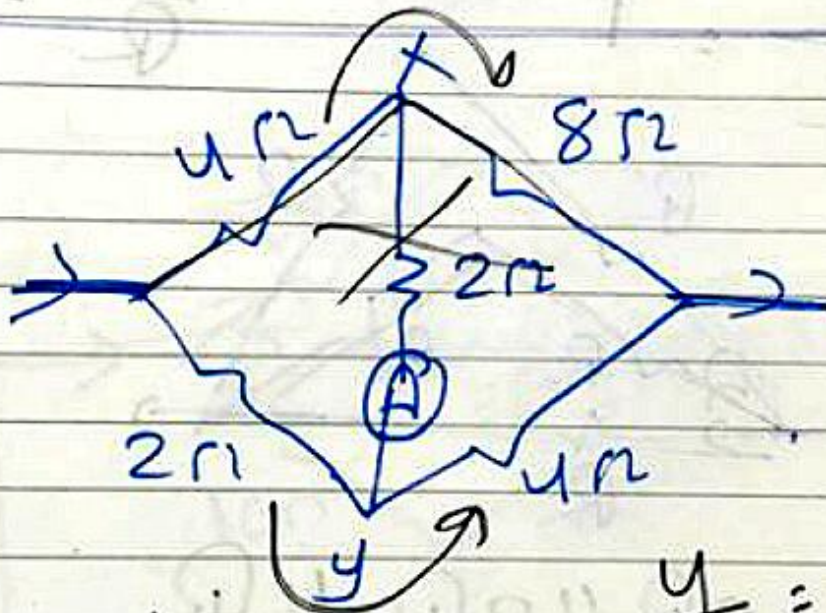 x
4Ω 8Ω
2Ω
A
2Ω 4Ω
y
4 =